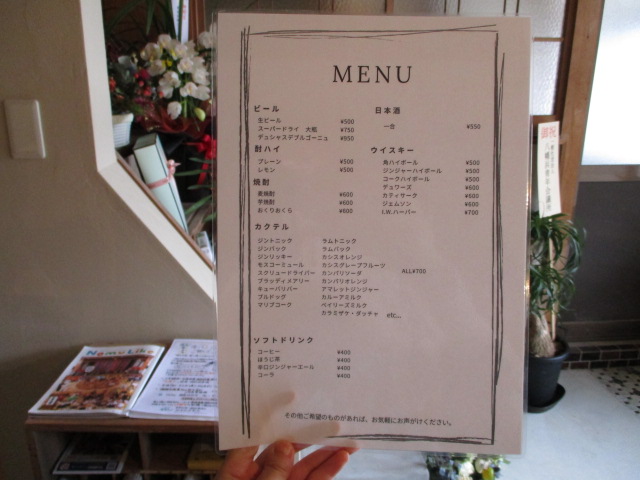 MENU
ビール
生ビール ¥500
スーパードライ 大瓶 ¥750
デュシャスデブルゴーニュ ¥950
酎ハイ
プレーン ¥500
レモン ¥500
焼酎
麦焼酎 ¥600
芋焼酎 ¥600
おくりおくら ¥600
日本酒
一合 ¥550
ウイスキー
角ハイボール ¥500
ジンジャーハイボール ¥500
コークハイボール ¥500
デュワーズ ¥600
カティサーク ¥600
ジェムソン ¥600
I.W.ハーパー ¥700
カクテル
ジントニック
ジンバック
ジンリッキー
モスコーミュール
スクリュードライバー
ブラッディメアリー
キューバリバー
ブルドッグ
マリブコーク
ラムトニック
ラムバック
カシスオレンジ
カシスグレープフルーツ
カンパリソーダ
カンパリオレンジ
アマレットジンジャー
カルーアミルク
ベイリーズミルク
カラミザケ・ダッチャ etc...
ALL¥700
ソフトドリンク
コーヒー ¥400
ほうじ茶 ¥400
辛口ジンジャーエール ¥400
コーラ ¥400
その他ご希望のものがあれば、お気軽にお声がけください。
御祝
Nomu Like